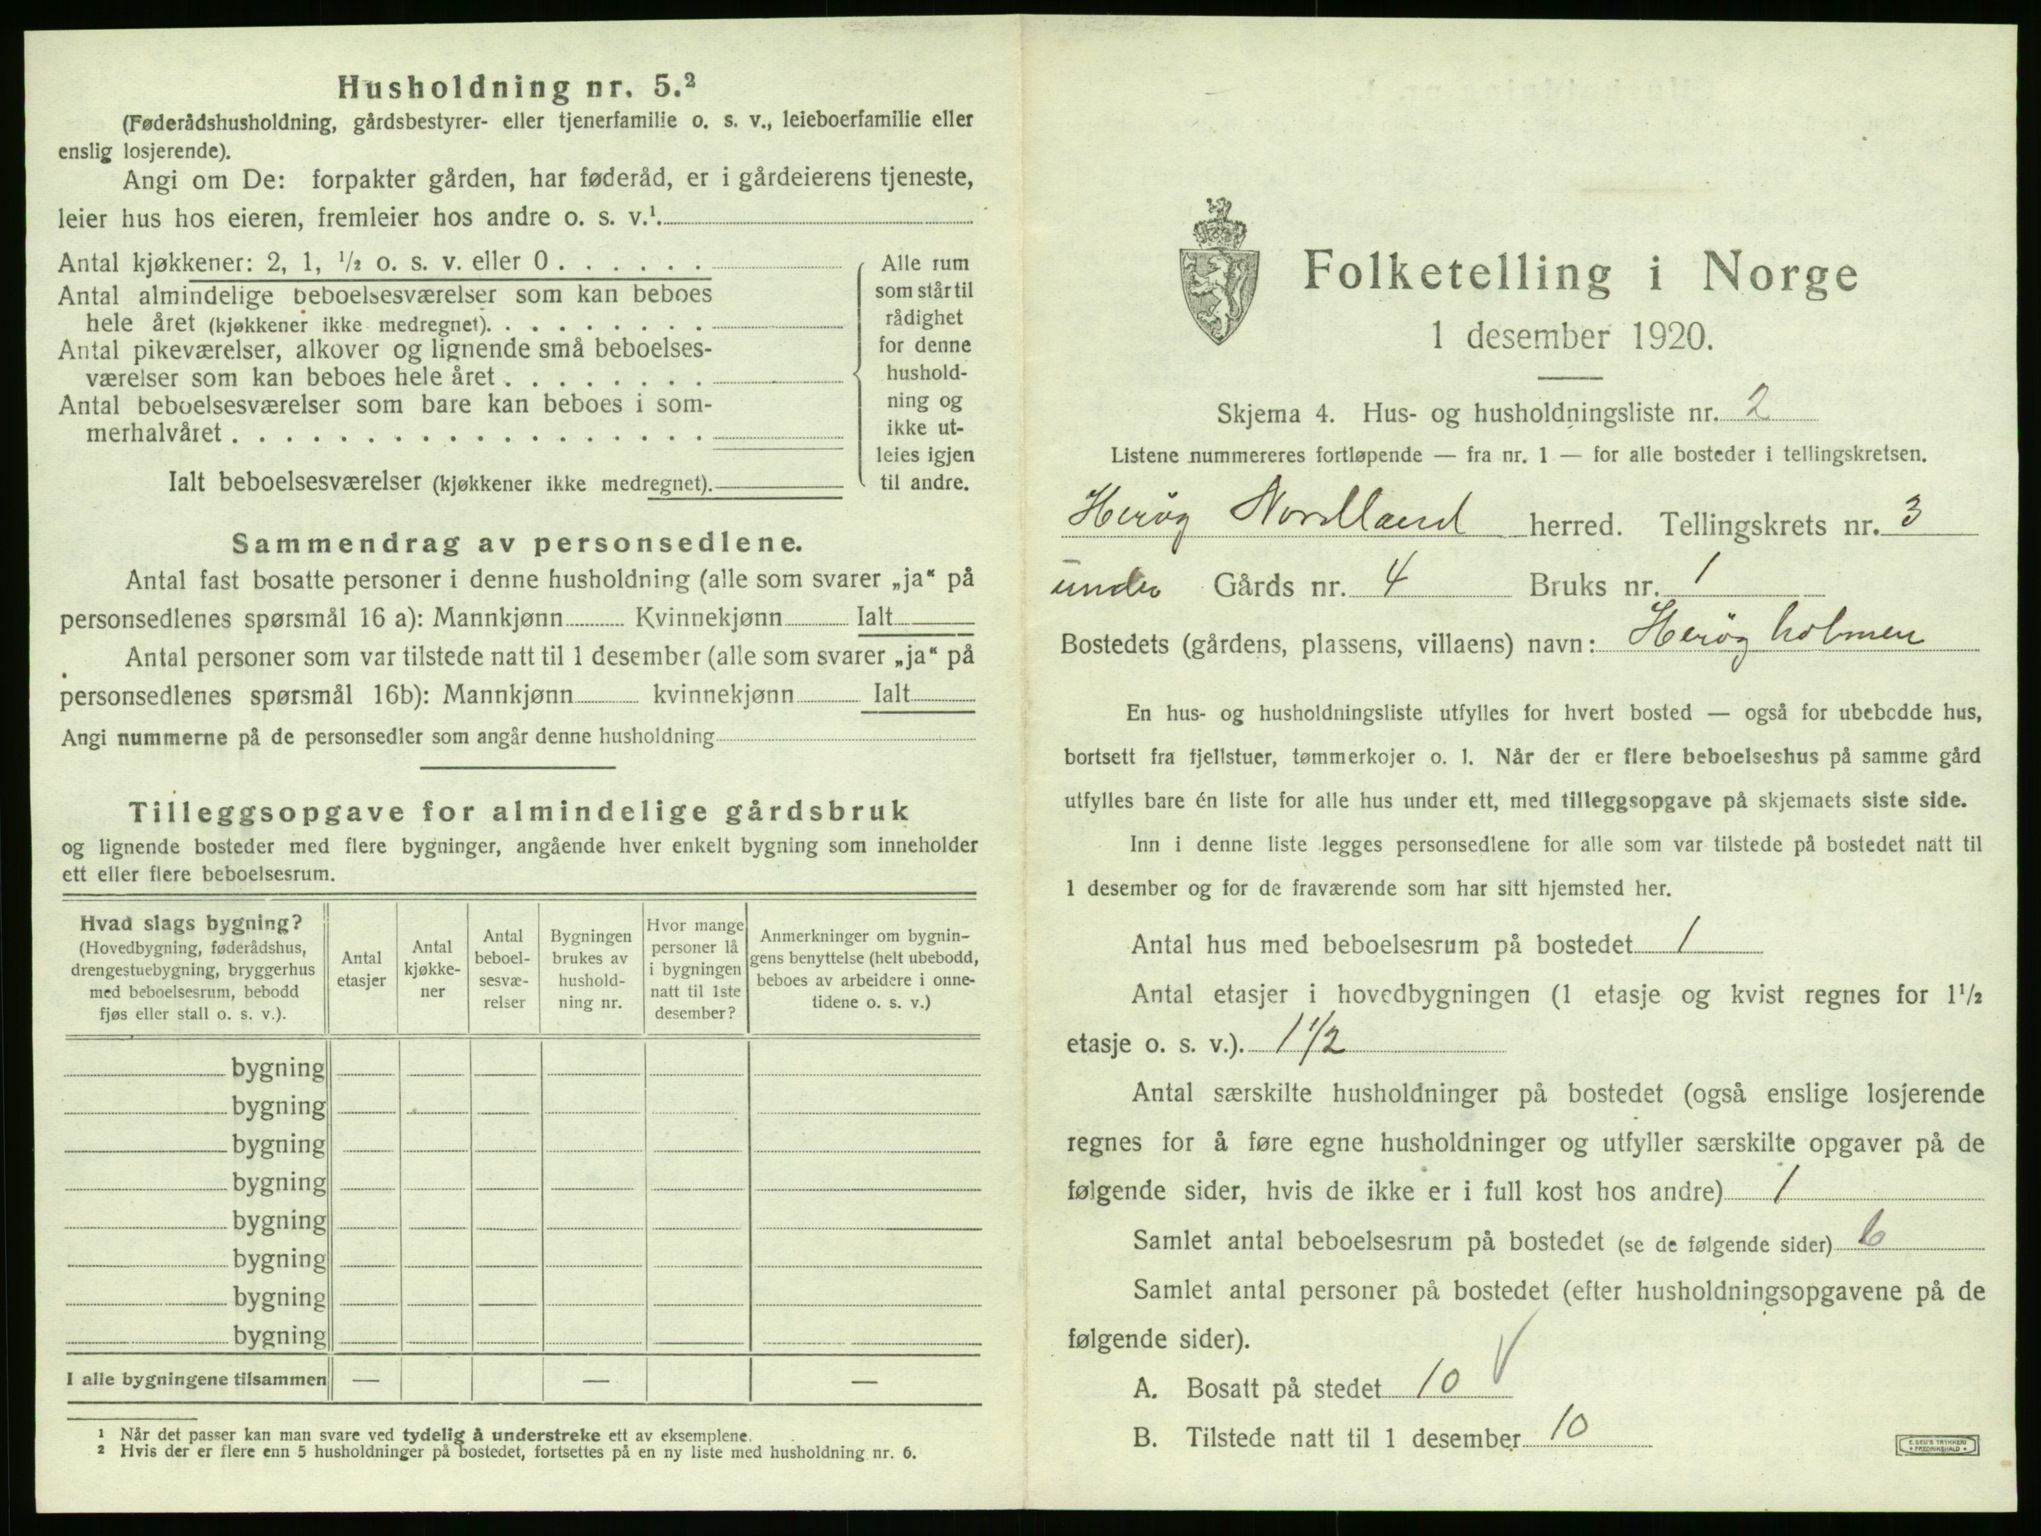 Husholdning nr. 5.²
(Føderådshusholdning, gårdsbestyrer- eller tjenerfamilie o. s. v., leieboerfamilie eller
enslig losjerende).
Angi om De: forpakter gården, har føderåd, er i gårdeierens tjeneste,
leier hus hos eieren, fremleier hos andre o. s. v.¹
Antal kjøkkener: 2, 1, ¹/₂ o. s. v. eller 0 . . . . . .
Antal almindelige beboelsesværelser som kan beboes
hele året (kjøkkener ikke medregnet). . . . . . . . .
Antal pikeværelser, alkover og lignende små beboelses-
værelser som kan beboes hele året . . . . . . . .
Antal beboelsesværelser som bare kan beboes i som-
merhalvåret . . . . . . . . . . . . . . . . . .
Ialt beboelsesværelser (kjøkkener ikke medregnet).
Alle rum
som står til
rådighet
for denne
hushold-
ning og
ikke ut-
leies igjen
til andre.
Sammendrag av personsedlene.
Antal fast bosatte personer i denne husholdning (alle som svarer „ja“ på
personsedlenes spørsmål 16 a): Mannkjønn Kvinnekjønn Ialt
Antal personer som var tilstede natt til 1 desember (alle som svarer „ja“ på
personsedlenes spørsmål 16b): Mannkjønn kvinnekjønn Ialt
Angi nummerne på de personsedler som angår denne husholdning
Tilleggsopgave for almindelige gårdsbruk
og lignende bosteder med flere bygninger, angående hver enkelt bygning som inneholder
ett eller flere beboelsesrum.
Hvad slags bygning?
(Hovedbygning, føderådshus,
drengestuebygning, bryggerhus
med beboelsesrum, bebodd
fjøs eller stall o. s. v.).
Antal
etasjer
Antal
kjøkke-
ner
Antal
beboel-
sesvæ-
relser
Bygningen
brukes av
hushold-
ning nr.
Hvor mange
personer lå
i bygningen
natt til 1ste
desember?
Anmerkninger om bygnin-
gens benyttelse (helt ubebodd,
beboes av arbeidere i onne-
tidene o. s. v.)
bygning
bygning
bygning
bygning
bygning
bygning
bygning
bygning
I alle bygningene tilsammen — — —
¹ Når det passer kan man svare ved tydelig å understreke ett av eksemplene.
² Hvis der er flere enn 5 husholdninger på bostedet, fortsettes på en ny liste med husholdning nr. 6.
Folketelling i Norge
1 desember 1920.
Skjema 4. Hus- og husholdningsliste nr. 2
Listene nummereres fortløpende — fra nr. 1 — for alle bosteder i tellingskretsen.
Herøy Nordland herred. Tellingskrets nr. 3
under Gårds nr. 4 Bruks nr. 1
Bostedets (gårdens, plassens, villaens) navn: Herøyholmen
En hus- og husholdningsliste utfylles for hvert bosted — også for ubebodde hus,
bortsett fra fjellstuer, tømmerkojer o. l. Når der er flere beboelseshus på samme gård
utfylles bare én liste for alle hus under ett, med tilleggsopgave på skjemaets siste side.
Inn i denne liste legges personsedlene for alle som var tilstede på bostedet natt til
1 desember og for de fraværende som har sitt hjemsted her.
Antal hus med beboelsesrum på bostedet 1
Antal etasjer i hovedbygningen (1 etasje og kvist regnes for 1¹/₂
etasje o. s. v.). 1 1/2
Antal særskilte husholdninger på bostedet (også enslige losjerende
regnes for å føre egne husholdninger og utfyller særskilte opgaver på de
følgende sider, hvis de ikke er i full kost hos andre) 1
Samlet antal beboelsesrum på bostedet (se de følgende sider) 6
Samlet antal personer på bostedet (efter husholdningsopgavene på de
følgende sider).
A. Bosatt på stedet 10
B. Tilstede natt til 1 desember 10